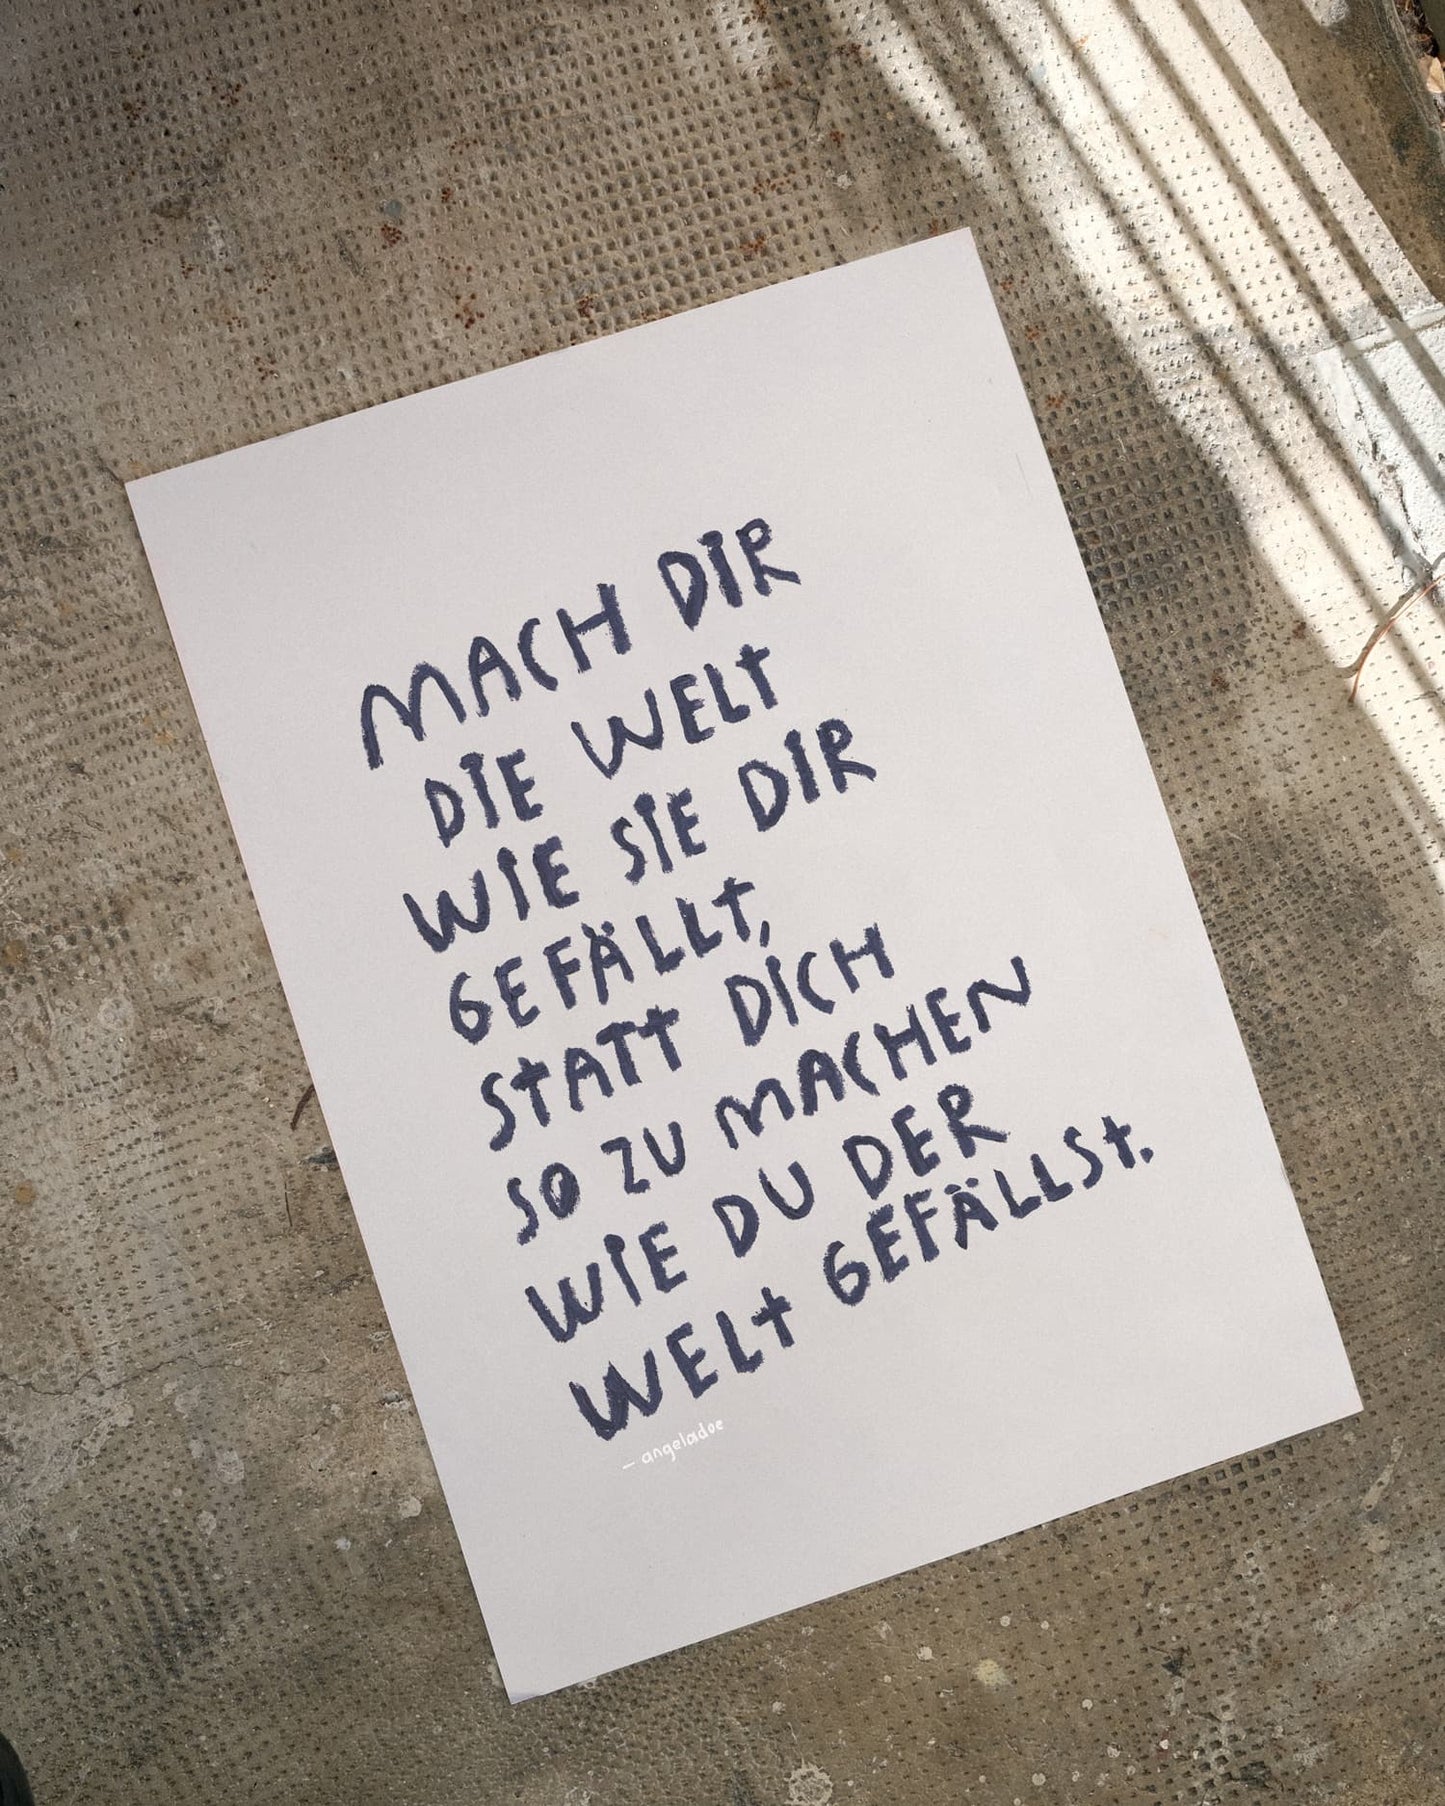 MACH DIR
DIE WELT
WIE SIE DIR
GEFÄLLT,
STATT DICH
SO ZU MACHEN
WIE DU DER
WELT GEFÄLLST.
– angeladoe